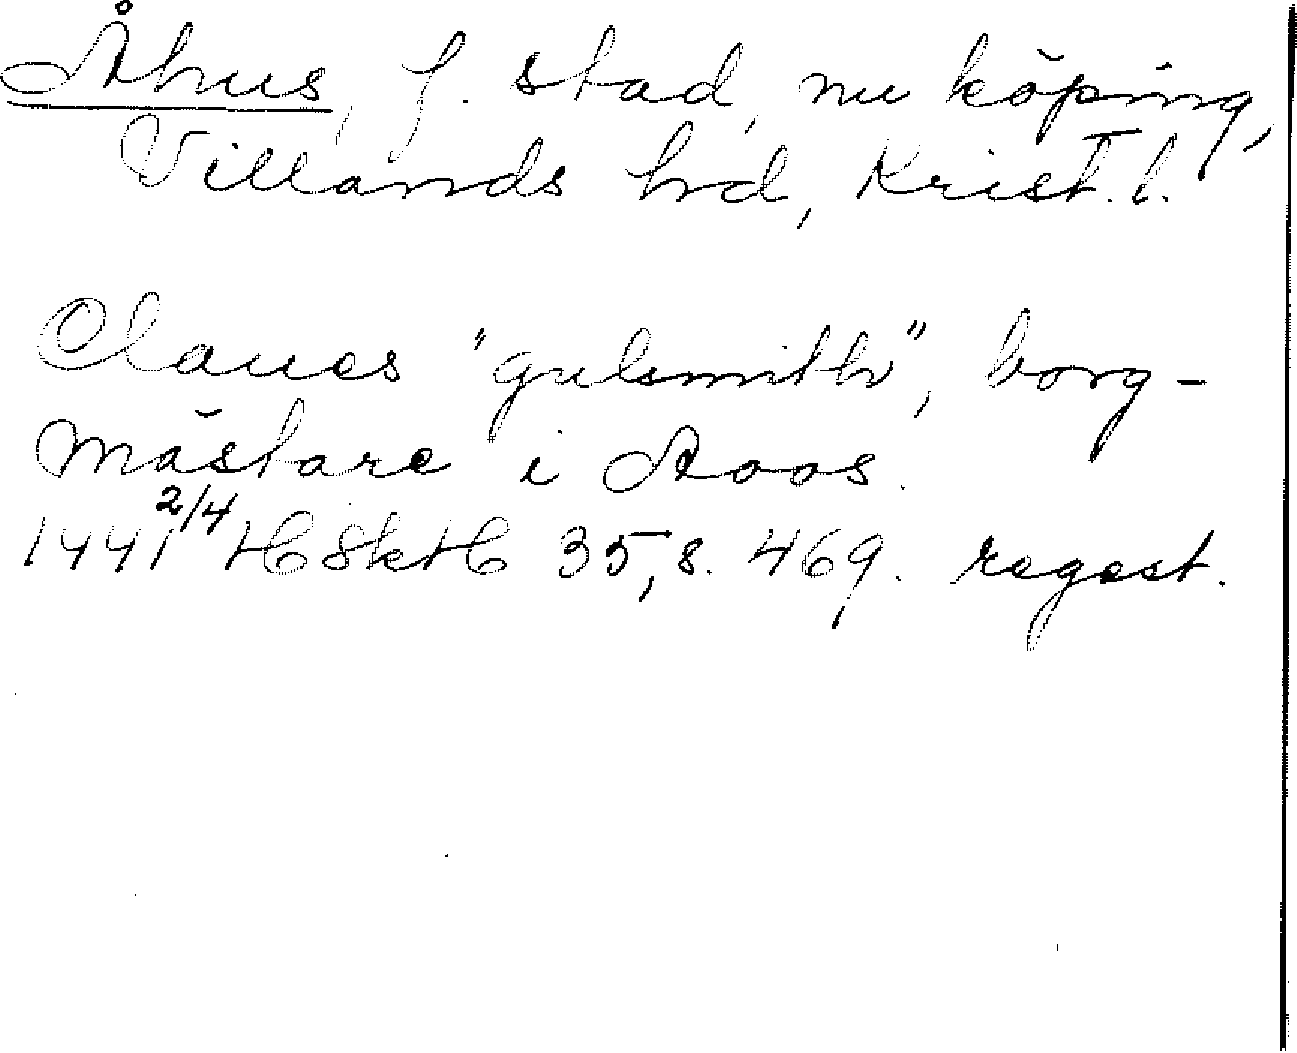 Åhus, f. stad, nu köping,
Villands hd, Krist. l.
Claues "gulsmith", borg-
mästare i Aoos.
1441 2/4 HSkH 35, s. 469. regest.